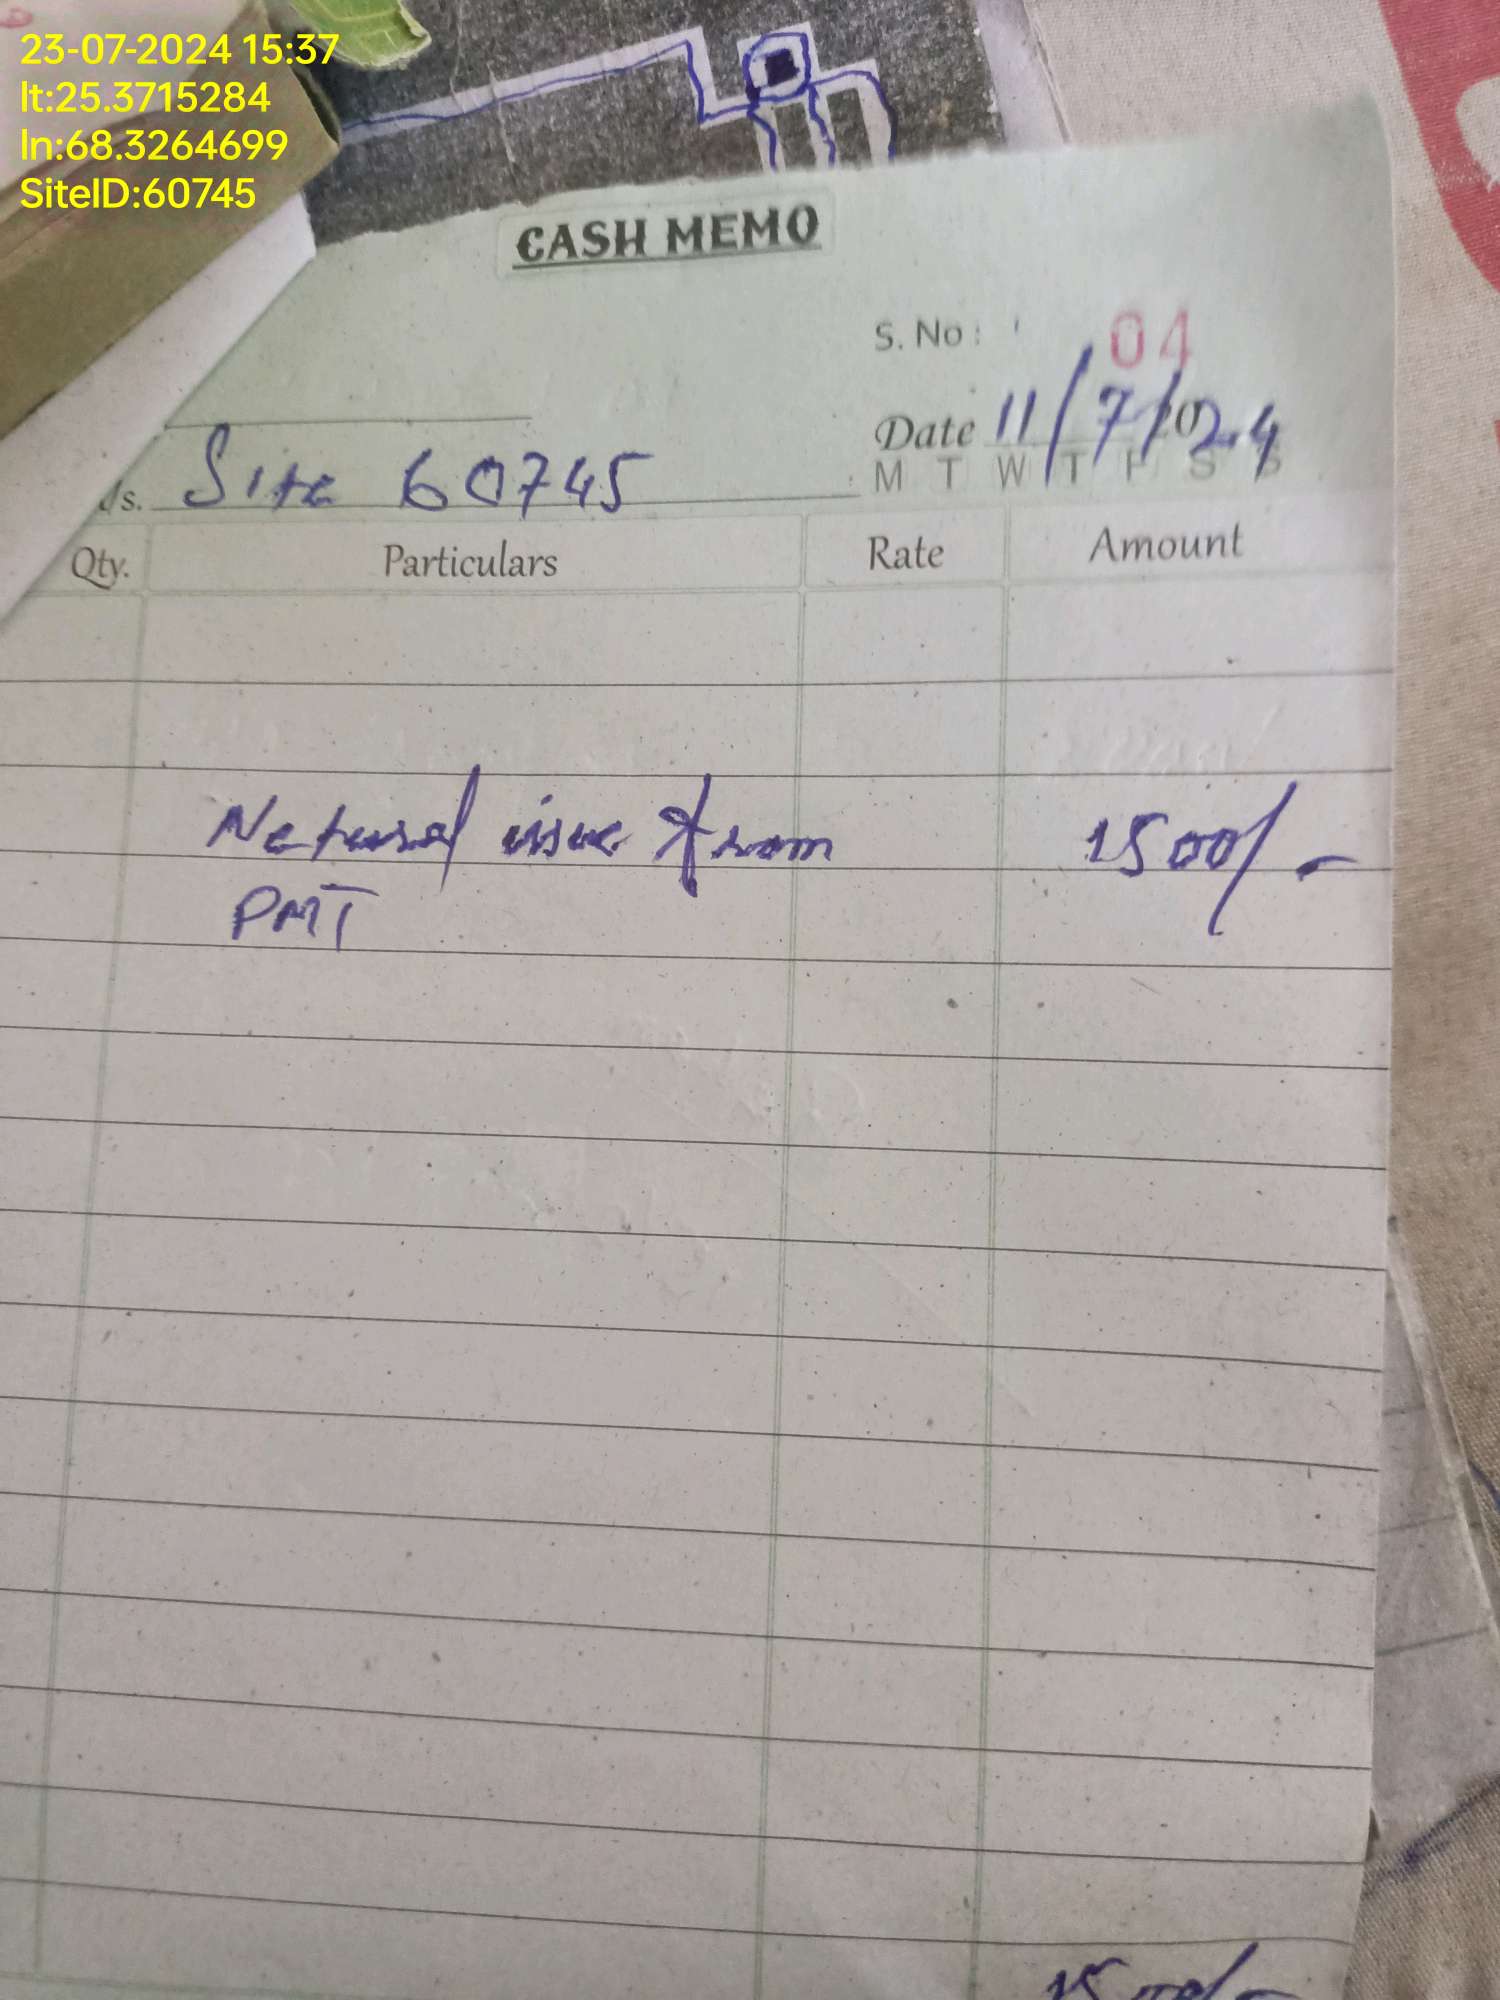 23-07-2024 15:37
lt:25.3715284
ln:68.3264699
SiteID:60745
CASH MEMO
S. No: 04
Date 11/7/24
M T W T F S S
/s. Site 60745
Qty. Particulars Rate Amount
Netural issue from 1500/-
PMT
1500/-